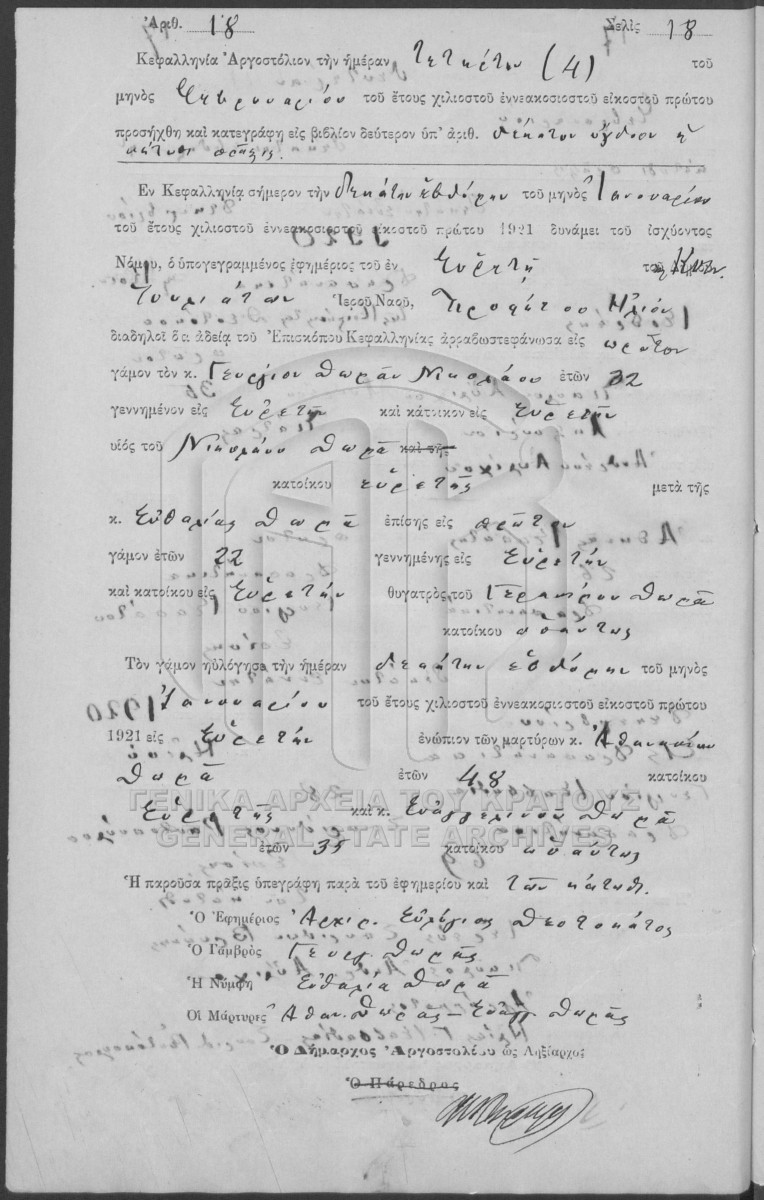 Ἀριθ. 18 Σελὶς 18
Κεφαλληνία Ἀργοστόλιον τὴν ἡμέραν τετάρτην (4) τοῦ
μηνὸς Φεβρουαρίου τοῦ ἔτους χιλιοστοῦ ἐννεακοσιοστοῦ εἰκοστοῦ πρώτου
προσήχθη καὶ κατεγράφη εἰς βιβλίον δεύτερον ὑπ' ἀριθ. δέκατον ὄγδοον ἡ
κάτωθι πρᾶξις.
Ἐν Κεφαλληνίᾳ σήμερον τὴν δεκάτην ἑβδόμην τοῦ μηνὸς Ἰανουαρίου
τοῦ ἔτους χιλιοστοῦ ἐννεακοσιοστοῦ εἰκοστοῦ πρώτου 1921 δυνάμει τοῦ ἰσχύοντος
Νόμου, ὁ ὑπογεγραμμένος ἐφημέριος τοῦ ἐν Εὐρετῆ
Τουλιάτων Ἱεροῦ Ναοῦ, Προφήτου Ἠλιοῦ
διαδηλοῖ δι' ἀδείᾳ τοῦ Ἐπισκόπου Κεφαλληνίας ἀρραβωστεφάνωσα εἰς πρῶτον
γάμον τὸν κ. Γεώργιον Θωρᾶν Νικολάου ἐτῶν 32
γεννημένον εἰς Εὐρετὴν καὶ κάτοικον εἰς Εὐρετὴν
υἱὸς τοῦ Νικολάου Θωρᾶ καὶ τῆς
κατοίκου εὐρετῆς μετὰ τῆς
κ. Εὐθαλίας Θωρᾶ ἐπίσης εἰς πρῶτον
γάμον ἐτῶν 22 γεννημένης εἰς Εὐρετὴν
καὶ κατοίκου εἰς Εὐρετὴν θυγατρὸς τοῦ Γερασίμου Θωρᾶ
κατοίκου ὡσαύτως
Τὸν γάμον ηὐλόγησε τὴν ἡμέραν δεκάτην ἑβδόμην τοῦ μηνὸς
Ἰανουαρίου τοῦ ἔτους χιλιοστοῦ ἐννεακοσιοστοῦ εἰκοστοῦ πρώτου
1921 εἰς Εὐρετὴν ἐνώπιον τῶν μαρτύρων κ. Ἀθανασίου
Θωρᾶ ἐτῶν 48 κατοίκου
ΓΕΝΙΚΑ ΑΡΧΕΙΑ ΤΟΥ ΚΡΑΤΟΥΣ
Εὐρετῆς καὶ κ. Εὐαγγελινοῦ Θωρᾶ
GENERAL STATE ARCHIVES
ἐτῶν 35 κατοίκου ὡσαύτως
Ἡ παροῦσα πρᾶξις ὑπεγράφη παρὰ τοῦ ἐφημερίου καὶ τῶν κάτωθι.
Ὁ Ἐφημέριος Ἀρχιμ. Εὐλόγιος Θεοτοκάτος
Ὁ Γαμβρὸς Γεώργ. Θωρᾶς
Ἡ Νύμφη Εὐθαλία Θωρᾶ
Οἱ Μάρτυρες Ἀθαν. Θωρᾶς – Εὐάγγ. Θωρᾶς
Ὁ Δήμαρχος Ἀργοστολίου ὡς Ληξίαρχος
Ὁ Πάρεδρος